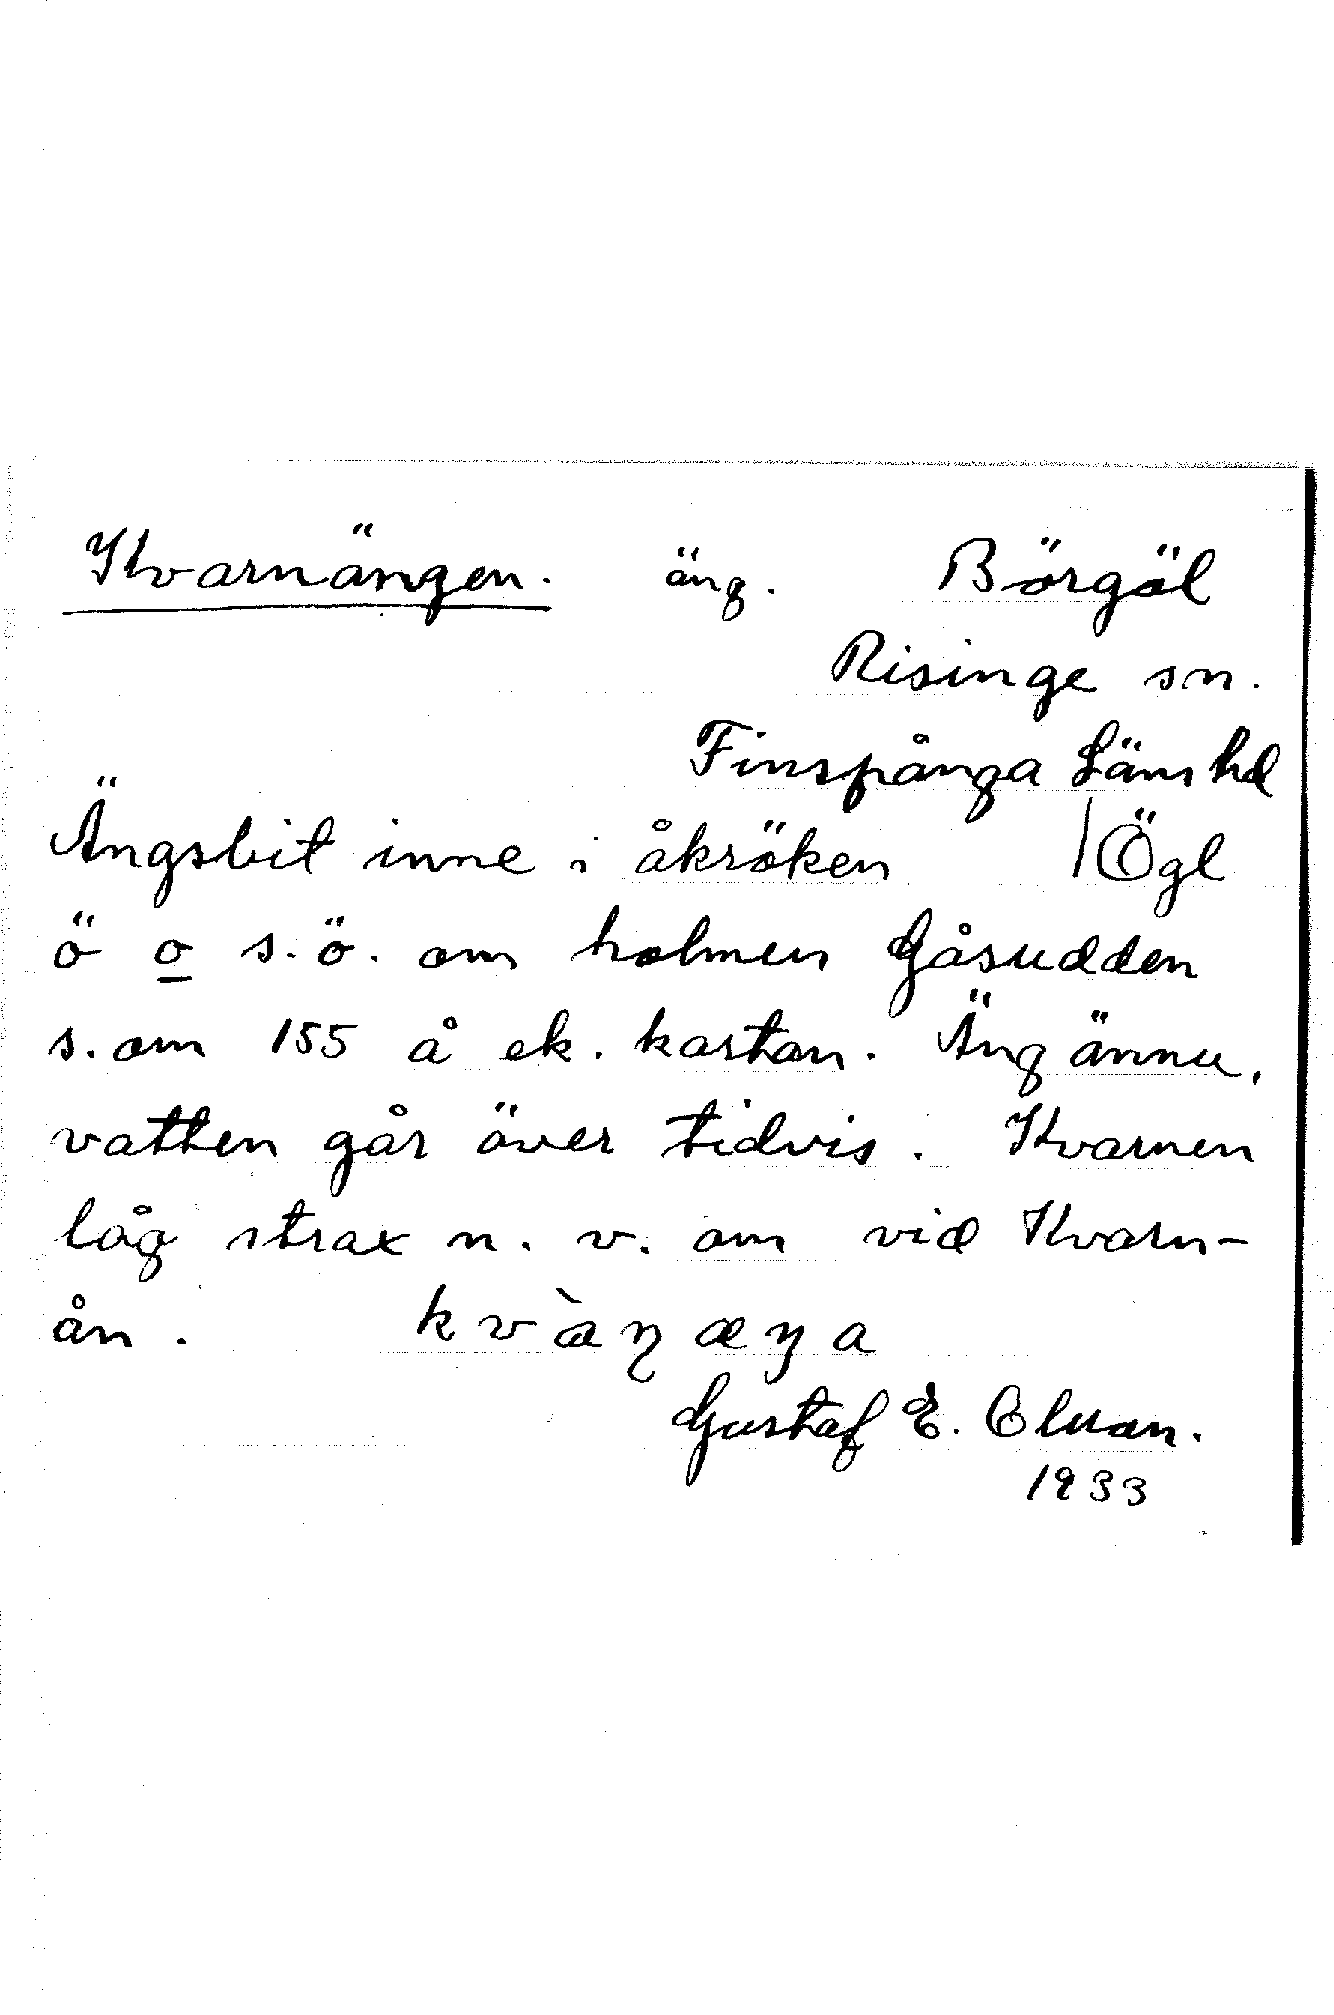 Kvarnängen. äng. Börgöl
Risinge sn.
Finspånga Läns hd
Ängsbit inne i åkröken /Ögl
ö o s.ö. om holmen Gåsudden
s. om 155 å ek. kartan. Äng ännu,
vatten går över tidvis. Kvarnen
låg strax n. v. om vid Kvarn-
ån.
Gustaf E.
1933